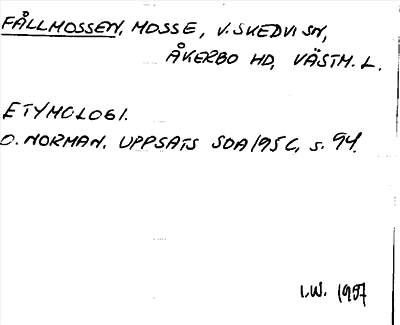 FÅLLMOSSEN, MOSSE, V. SKEDVI SN,
ÅKERBO HD, VÄSTM. L.
ETYMOLOGI.
O. NORMAN. UPPSATS SOA 195C, s. 94.
I.W. 1957